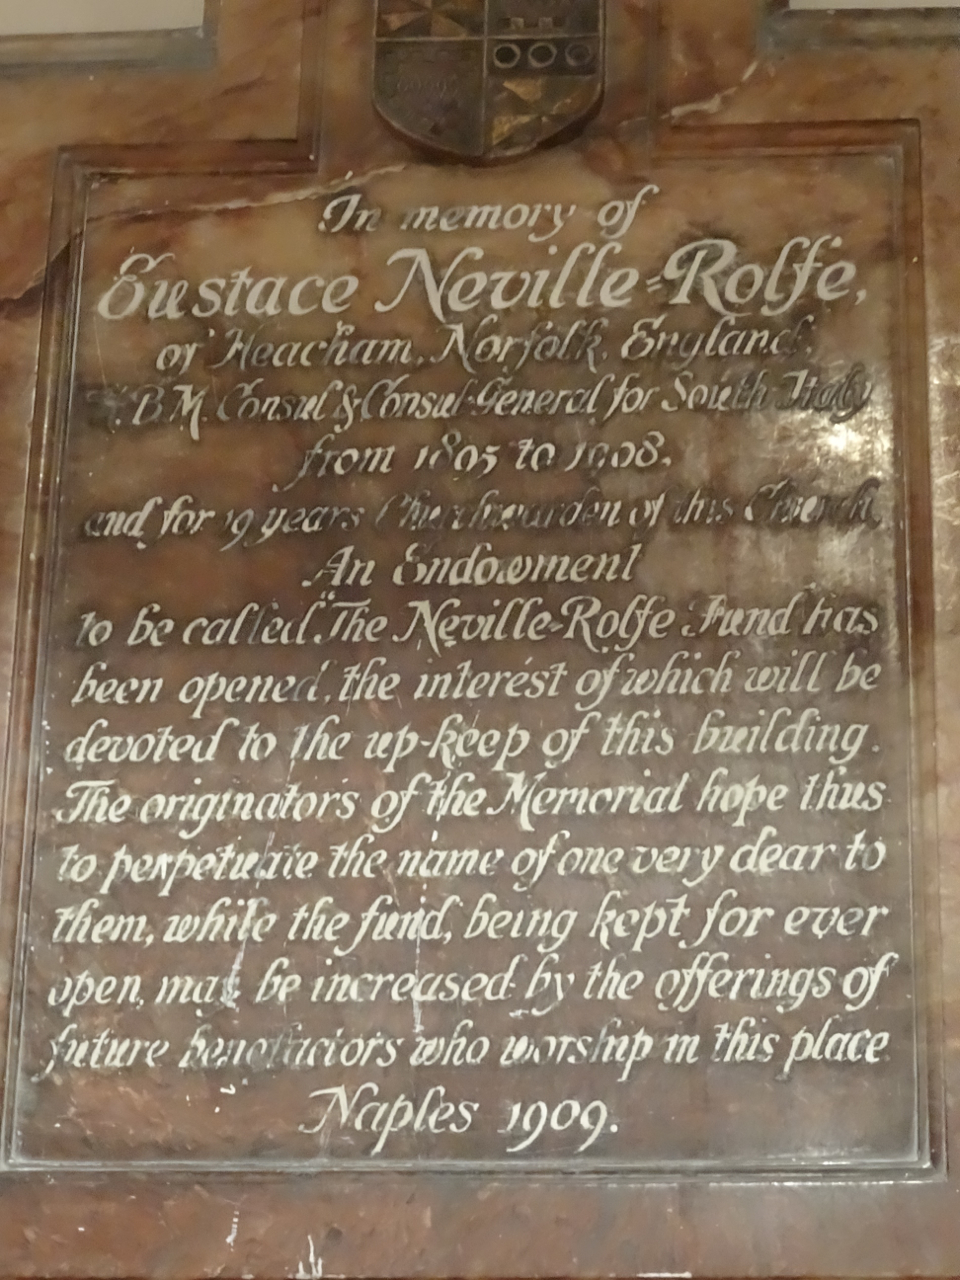 In memory of
Eustace Neville-Rolfe,
of Heacham, Norfolk, England,
B.M. Consul & Consul-General for South Italy
from 1895 to 1908.
and for 19 years Churchwarden of this Church.
An Endowment
to be called "The Neville-Rolfe Fund has
been opened, the interest of which will be
devoted to the up-keep of this building.
The originators of the Memorial hope thus
to perpetuate the name of one very dear to
them, while the fund, being kept for ever
open, may be increased by the offerings of
future benefactors who worship in this place
Naples 1909.